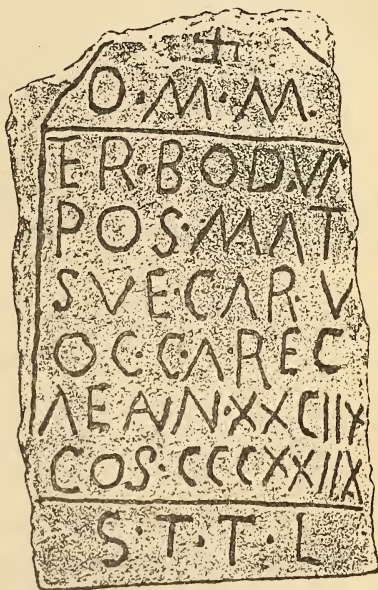 O·M·M·
ER·BODVS
POS·MAT
SVE·CAR·V
OC·C·AREC
AE ANN·XXCIIX
COS·CCCXXIIX
S·T·T·L